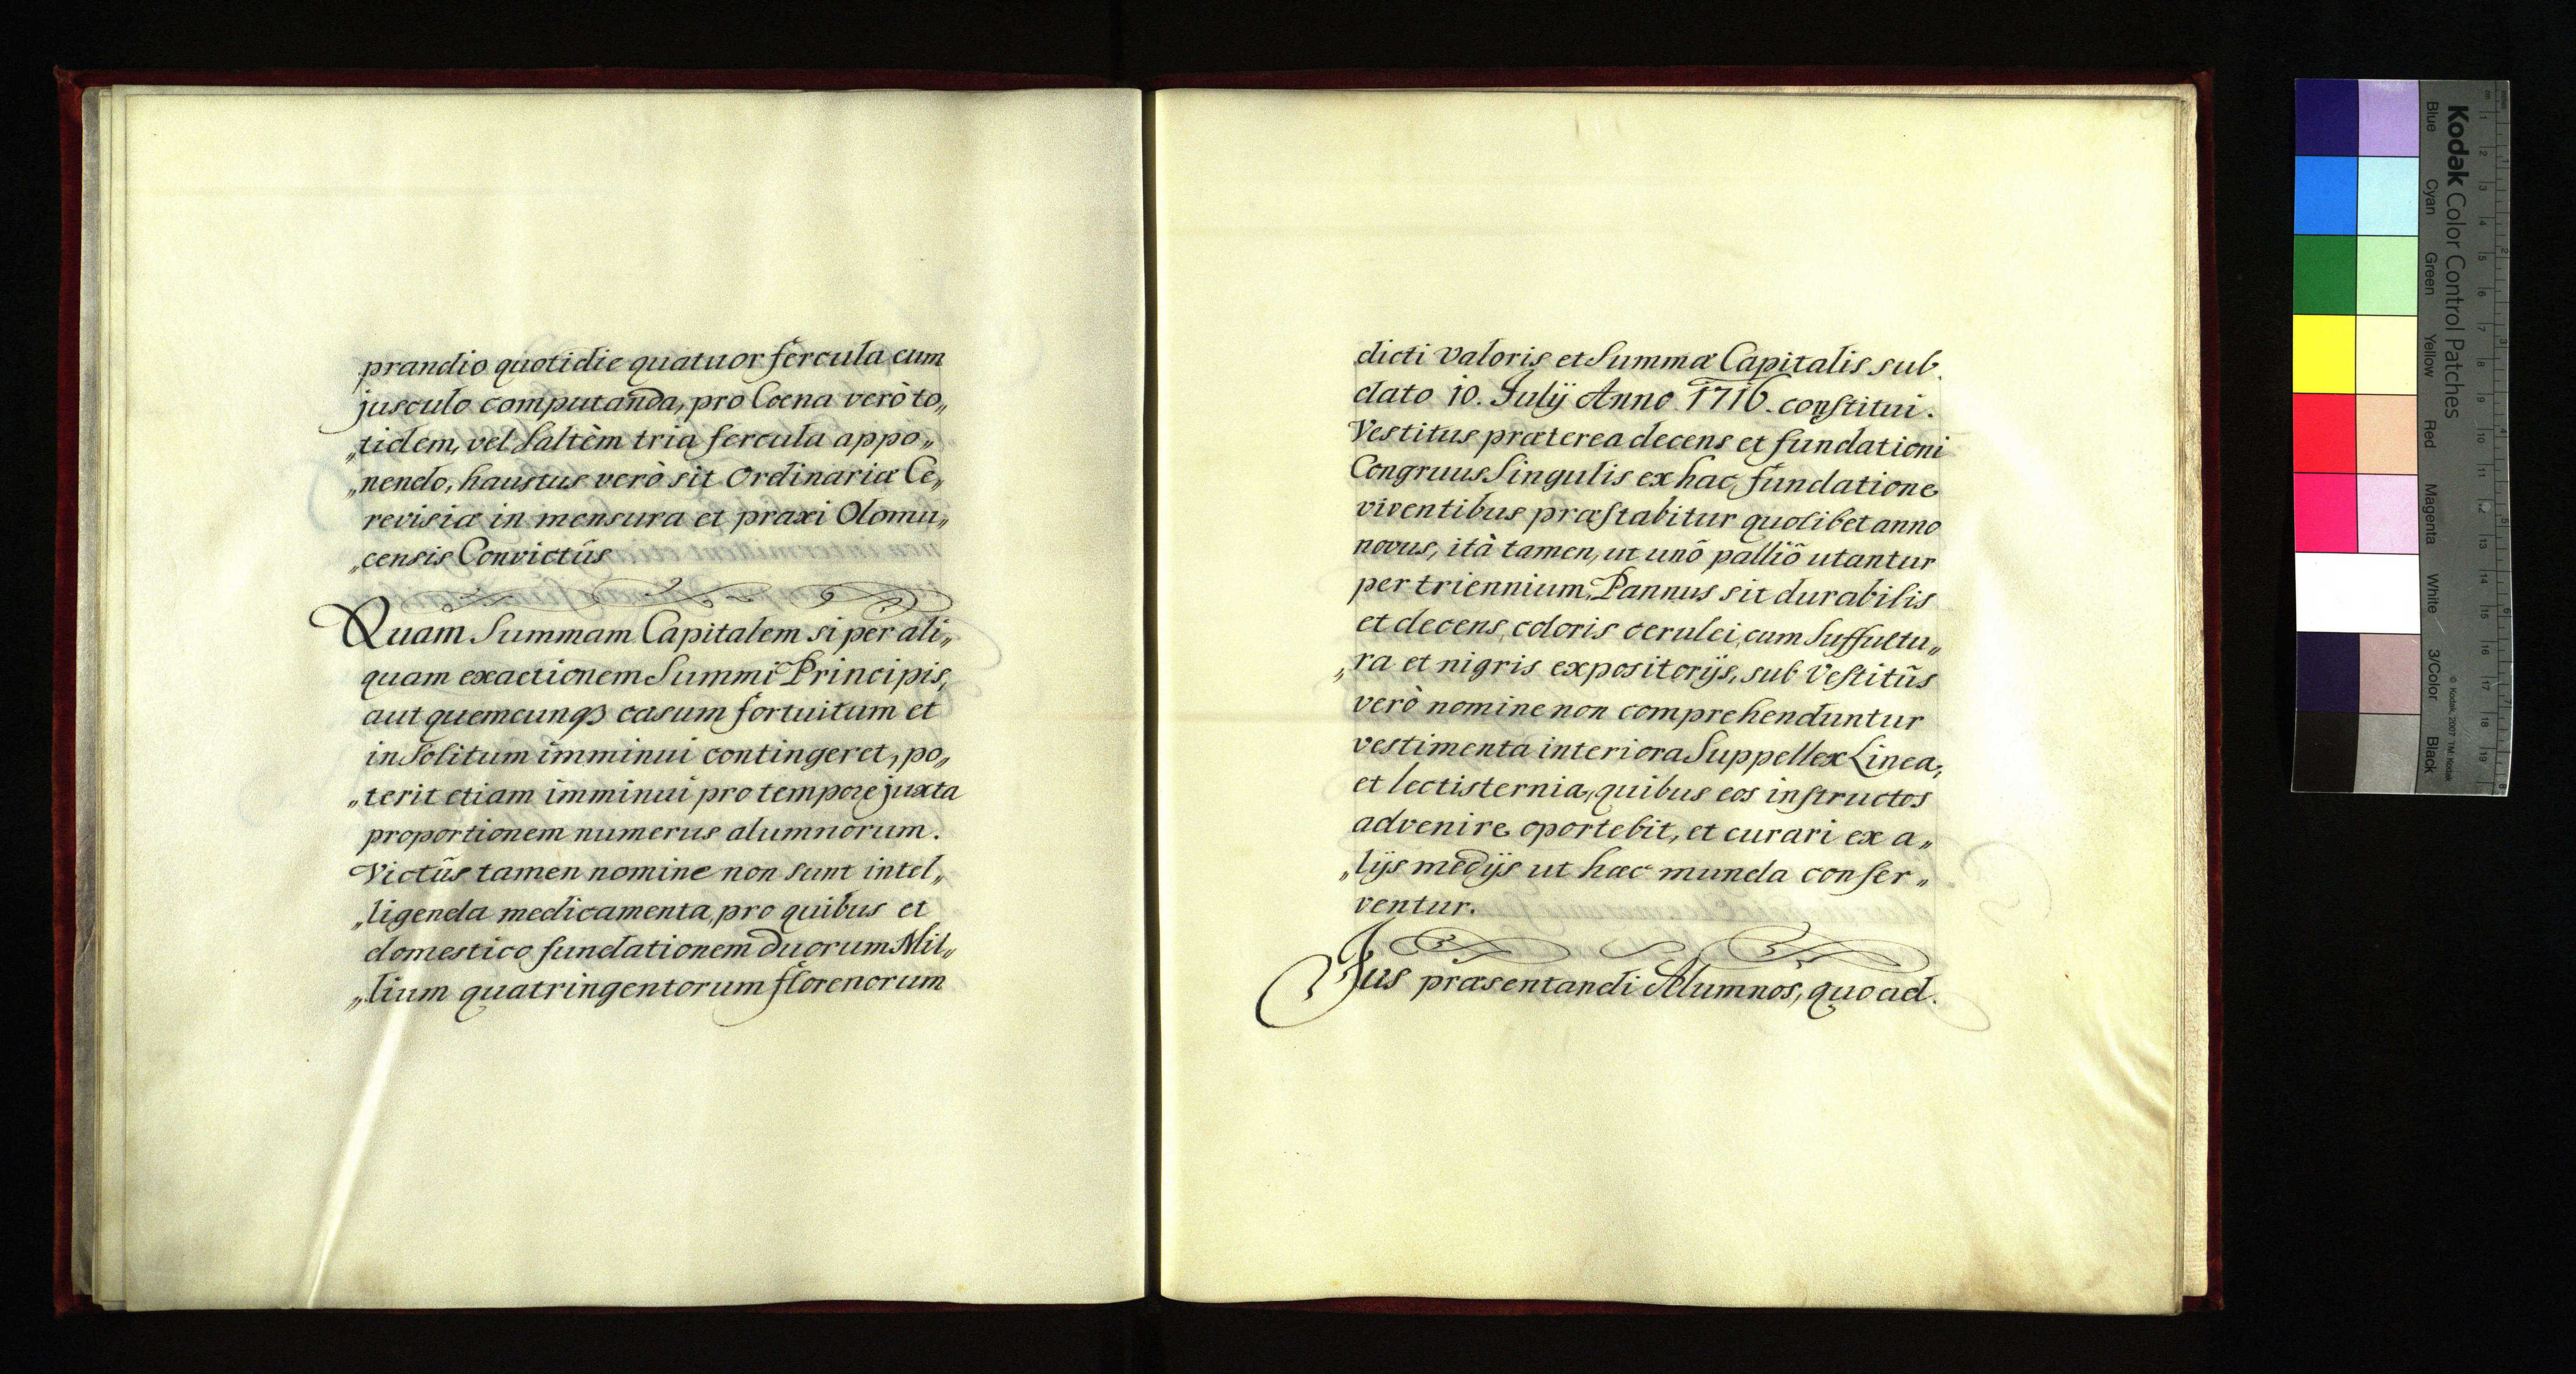 prandio quotidie quatuor fercula cum
jusculo computanda, pro Coena verò to„
„tidem, vel Saltèm tria fercula appo„
„nendo, haustus verò sit Ordinariæ Ce„
revisiæ in mensura et praxi Olomu„
„censis Convictûs
Quam Summam Capitalem si per ali„
quam exactionem Summi Principis,
aut quemcunqȝ casum fortuitum et
inSolitum imminui contingeret, po„
„terit etiam imminui pro tempore juxta
proportionem numerus alumnorum.
Victûs tamen nomine non sunt intel„
„ligenda medicamenta, pro quibus et
domestico fundationem duorum Mil„
„lium quatringentorum florenorum
dicti valoris et Summæ Capitalis sub
dato 10. Julÿ Anno 1716. constitui.
Vestitus præterea decens et fundationi
Congruus Singulis ex hac fundatione
viventibus præstabitur quolibet anno
novus, ità tamen, ut unô palliô utantur
per triennium, Pannus sit durabilis
et decens, coloris cerulei, cum Suffultu„
„ra et nigris expositorÿs, sub Vestitûs
verò nomine non comprehenduntur
vestimenta interiora Suppellex Linea,
et lectisternia, quibus eos instructos
advenire oportebit, et curari ex a„
„lÿs medÿs ut hæc munda conser„
ventur.
Jus præsentandi Alumnos, quoad
Kodak Color Control Patches
Blue Cyan Green Yellow Red Magenta White 3/Color Black
© Kodak, 2007 TM: Kodak